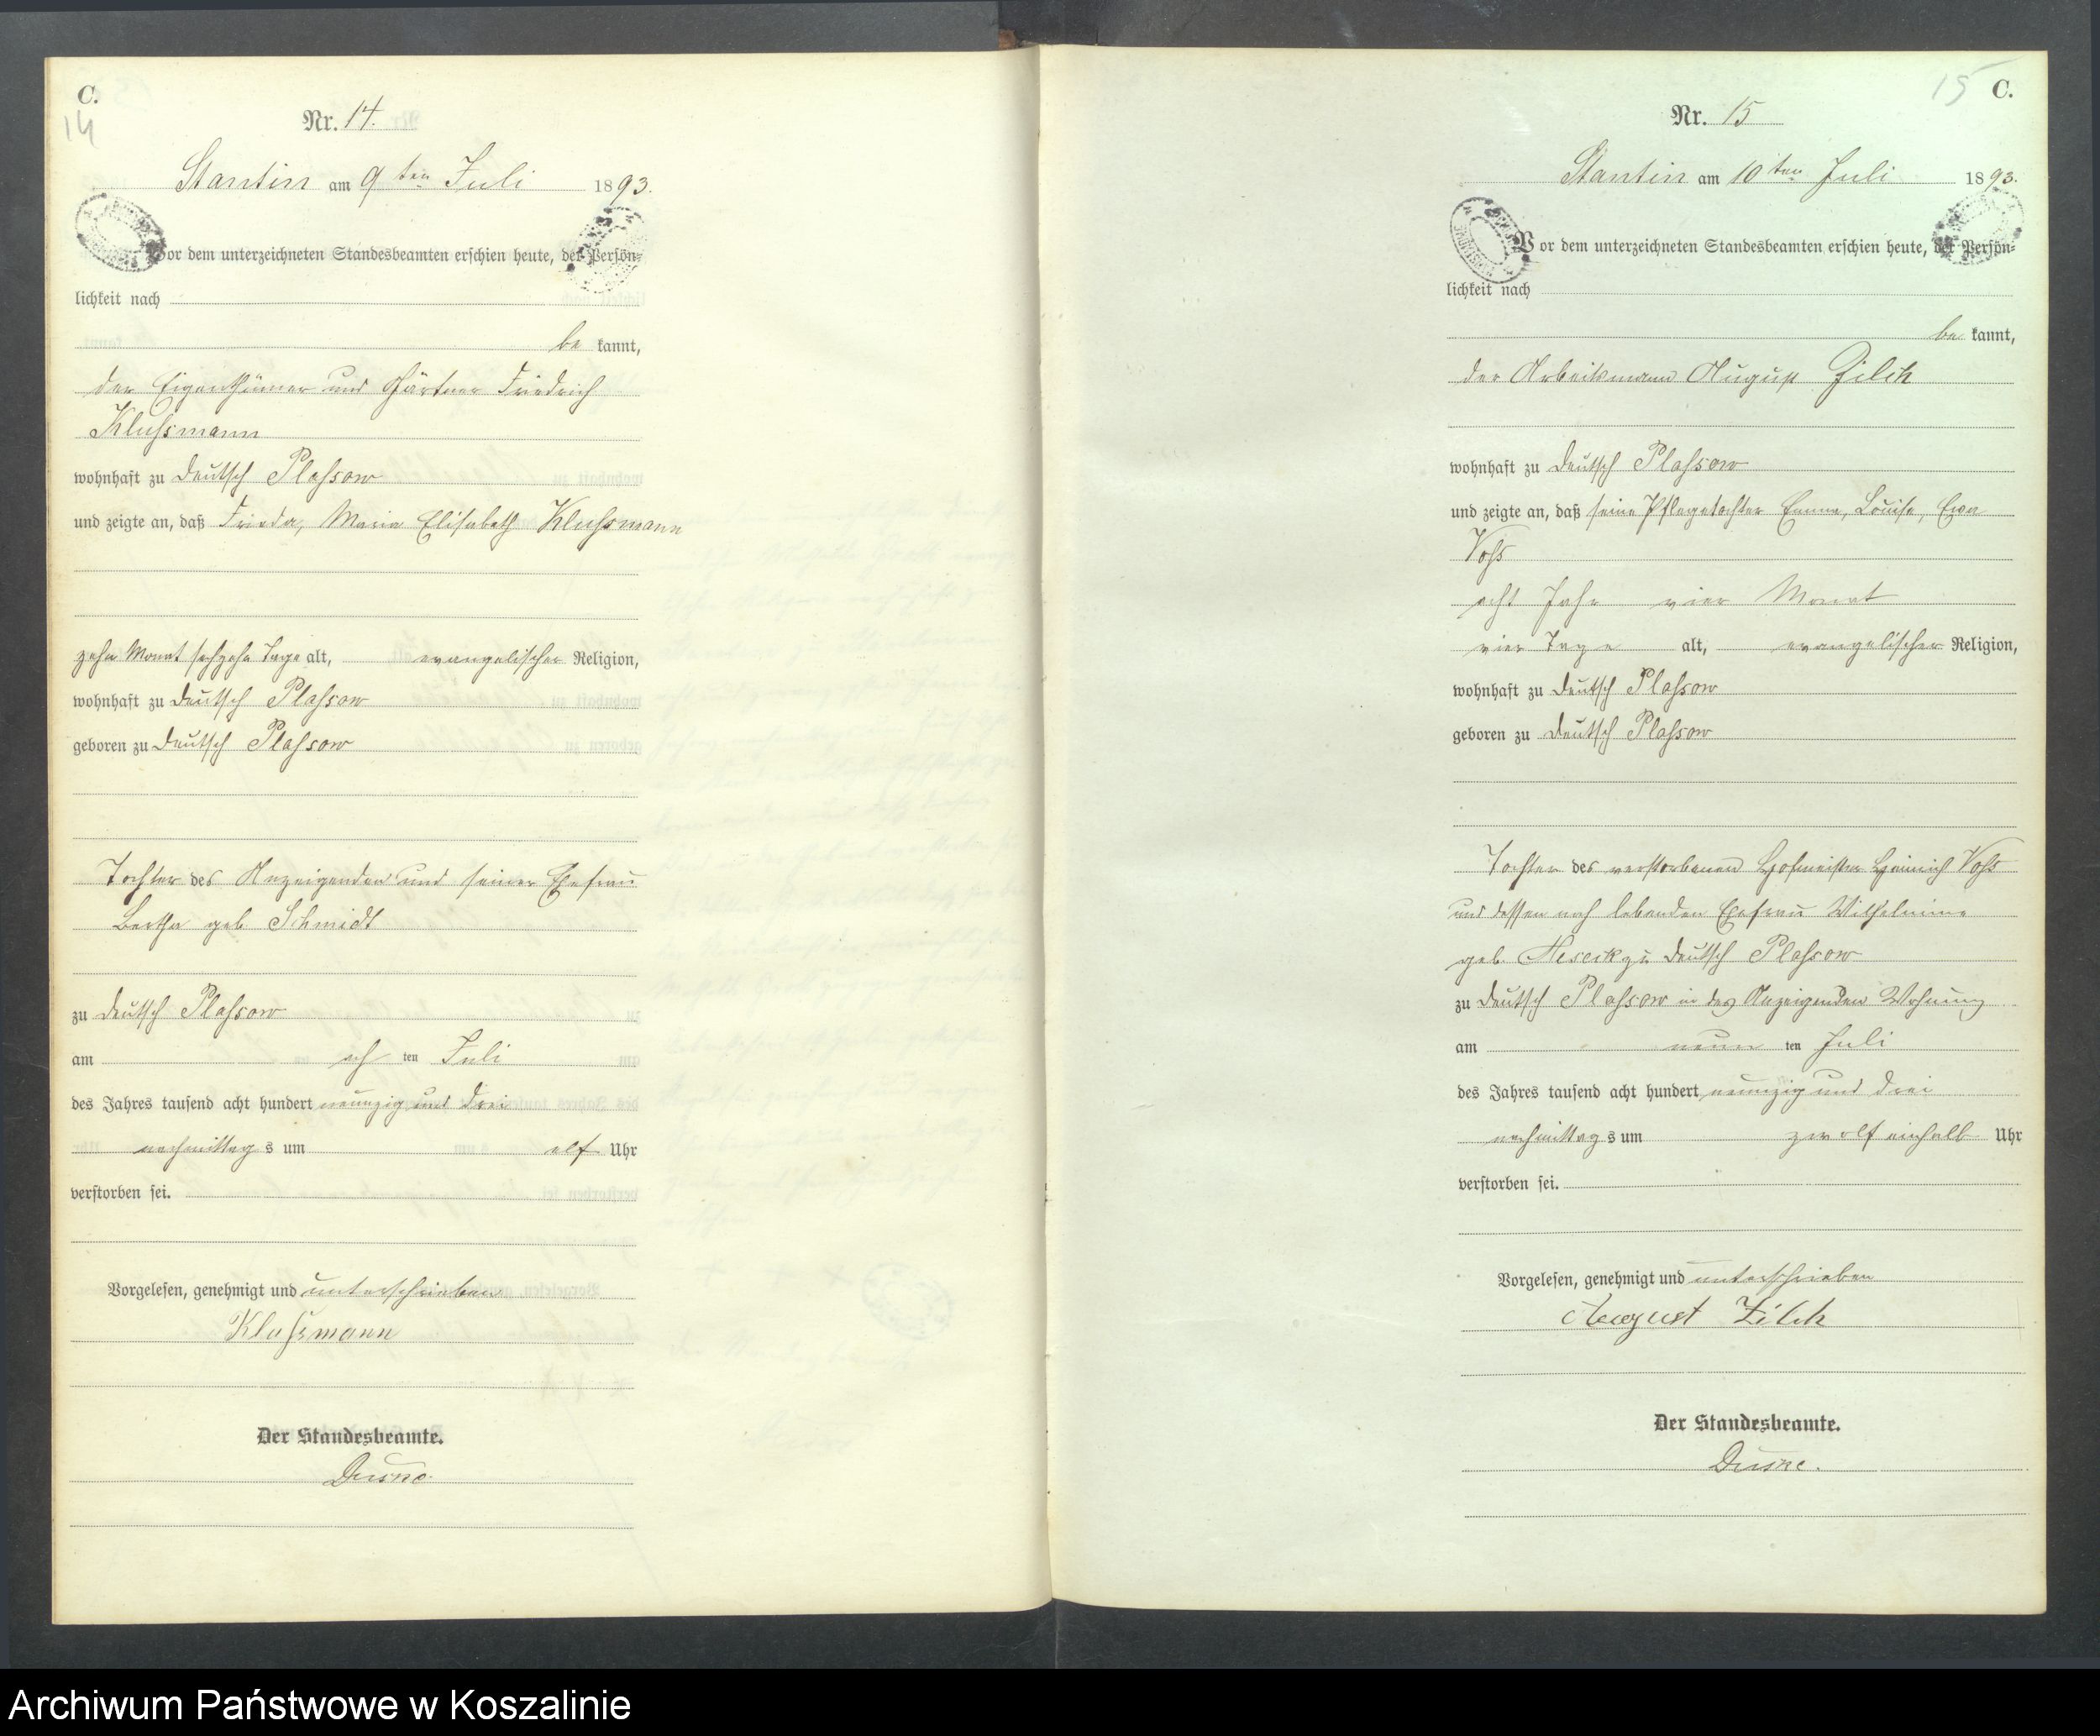 C.
14
Nr. 14.
Stantin am 9ten Juli 1893.
Vor dem unterzeichneten Standesbeamten erschien heute, der Persön-
lichkeit nach
be kannt,
der Eigenthümer und Gärtner Friedrich
Klußmann
wohnhaft zu Deutsch Plassow
und zeigte an, daß Frieda, Maria Elisabeth Klußmann
zehn Monat sechzehn Tage alt, evangelischer Religion,
wohnhaft zu Deutsch Plassow
geboren zu Deutsch Plassow
Tochter des Anzeigenden und seiner Ehefrau
Bertha geb. Schmidt
zu Deutsch Plassow
am ach ten Juli
des Jahres tausend acht hundert neunzig und drei
nachmittag s um elf Uhr
verstorben sei.
Vorgelesen, genehmigt und unterschrieben
Klußmann
Der Standesbeamte.
15 C.
Nr. 15
Stantin am 10ten Juli 1893.
Vor dem unterzeichneten Standesbeamten erschien heute, der Persön-
lichkeit nach
be kannt,
der Arbeitsmann August Zilch
wohnhaft zu Deutsch Plassow
und zeigte an, daß seine Pflegetochter Emma, Louise, Ewa
Voß
acht Jahr vier Monat
vier Tage alt, evangelischer Religion,
wohnhaft zu Deutsch Plassow
geboren zu Deutsch Plassow
Tochter des verstorbenen Hofmeister Heinrich Voß
und dessen noch lebenden Ehefrau Wilhelmine
geb. zu Deutsch Plassow
zu Deutsch Plassow in des Anzeigenden Wohnung
am neun ten Juli
des Jahres tausend acht hundert neunzig und drei
nachmittag s um zwolf einhalb Uhr
verstorben sei.
Vorgelesen, genehmigt und unterschrieben
August Zilch
Der Standesbeamte.
Archiwum Państwowe w Koszalinie